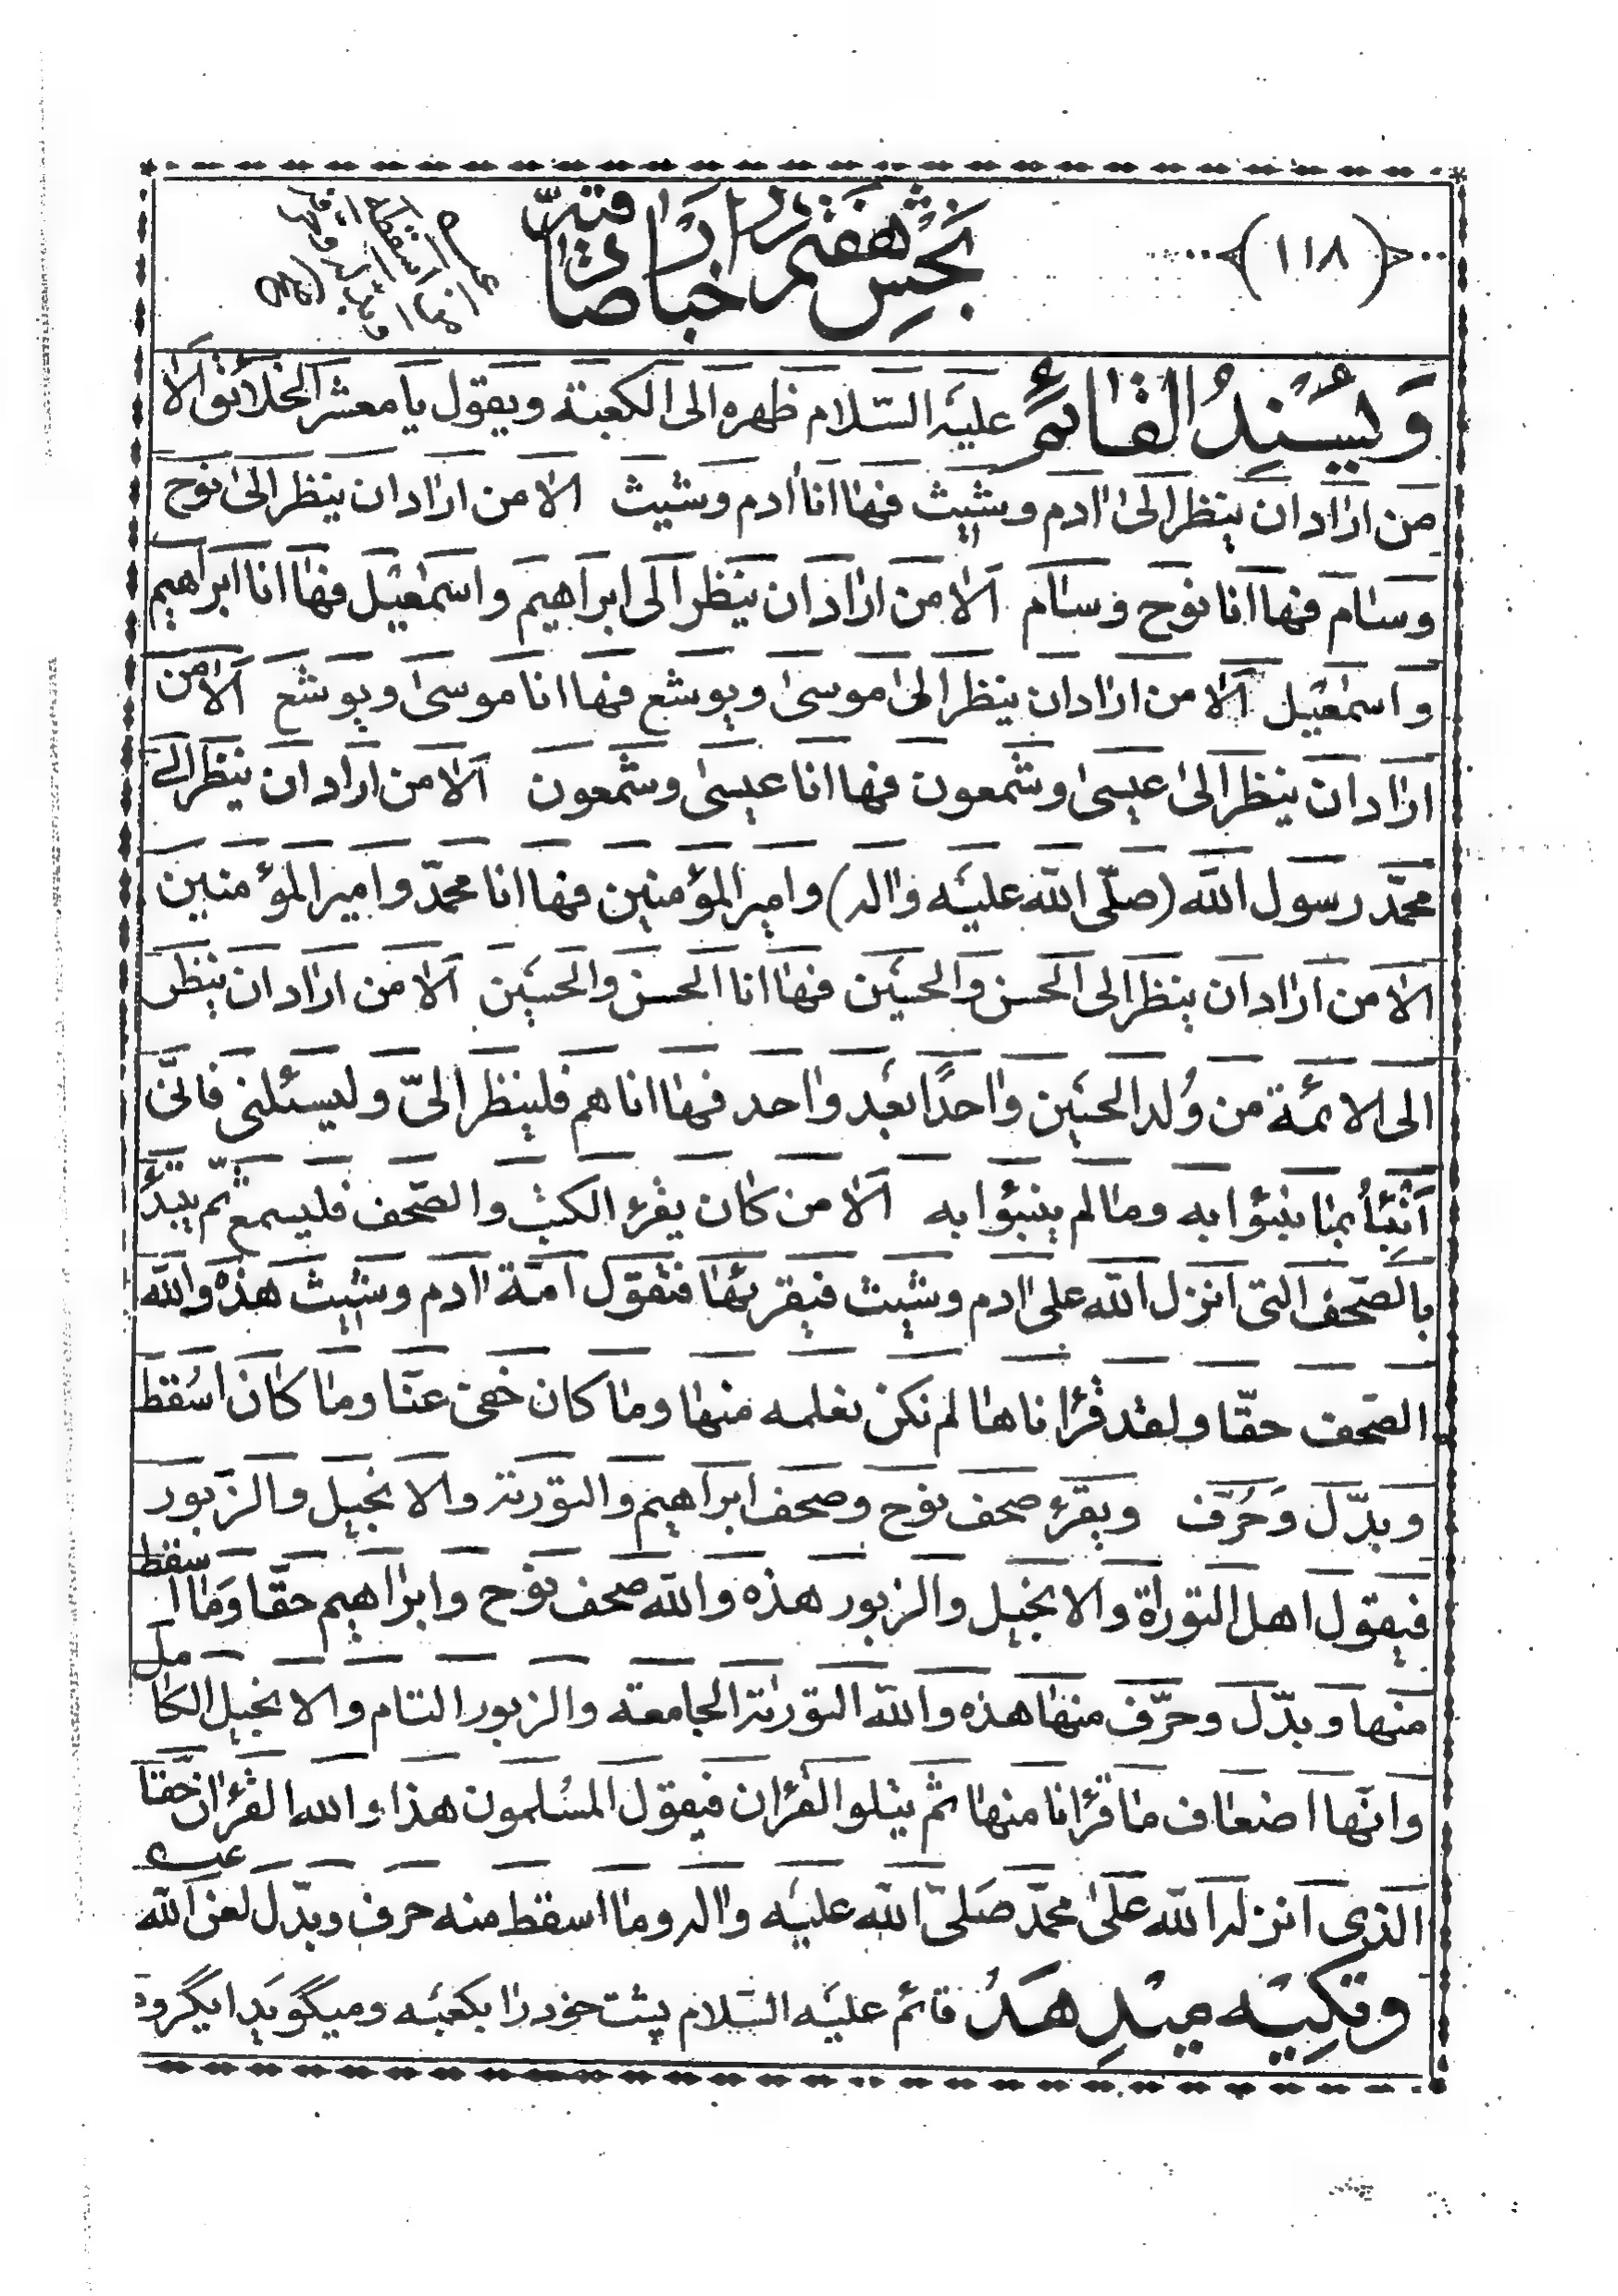 ﴿١١٨﴾
بَخشِ هفتم در اخبار صادقيّه
وَ يُسْنِدُ القٰائمُ عليه السّلام ظهره الى الكعبة و يقول يا معشر الخلائق الا
من ارٰاد ان ينظر الىٰ اٰدم و شيث فهٰا انا اٰدم و شيث الا من ارٰاد ان ينظر الىٰ نوح
و سٰام فهٰا انا نوح و سٰام اَلا من ارٰاد ان ينظر الى ابرٰاهيم و اسمٰعيل فهٰا انا ابرٰاهيم
و اسمٰعيل اَلا من ارٰاد ان ينظر الىٰ موسىٰ و يوشع فهٰا انا موسىٰ و يوشع اَلا من
ارٰاد ان ينظر الىٰ عيسىٰ و شمعون فهٰا انا عيسىٰ و شمعون اَلا من ارٰاد ان ينظر الى
محمّد رسول اللّه (صلّى اللّه عليه و اٰله) و امير المؤمنين فهٰا انا محمّد و امير المؤمنين
الا من ارٰاد ان ينظر الى الحسن و الحسين فهٰا انا الحسن و الحسين اَلا من ارٰاد ان ينظر
الى الائمّة من وُلد الحسين وٰاحدًا بعد وٰاحد فهٰا انا هم فلينظر الىّ و ليسئلنى فانّى
اُنَبِّأُ بمٰا ينبؤا به و مٰا لم ينبؤا به اَلا من كٰان يقرء الكتب و الصّحف فليسمع ثمّ يبدَأُ
بالصّحف الّتى انزل اللّه علىٰ اٰدم و شيث فيقرئهٰا فتقول امّة اٰدم و شيث هذه و اللّه
الصّحف حقّا و لقد قرٰاناهٰا لم نكن نعلمه منهٰا و مٰا كان خفى عنّا و مٰا كٰان اسُقط
و بدّل وَ حُرّف و يقرء صحف نوح و صحف ابرٰاهيم و التّورية و الانجيل و الزّبور
فيقول اهل التّورٰاة و الانجيل و الزبور هذه و اللّه صحف نوح و ابرٰاهيم حقّا وَ مٰا اسقط
منهٰا و بدّل و حرّف منهٰا هذه و اللّه التّورٰية الجامعة و الزبور التّام و الانجيل الكامل
و انّهٰا اضعاف مٰا قرٰانا منهٰا ثمّ يتلو القرٰان فيقول المسُلمون هذا و اللّه القرٰان حقّا
الّذى انزله اللّه علىٰ محمّد صَلىّ اللّه عليه و اٰله و مٰا اسقط منه حرف و بدّل لعن اللّه
و تكِيه ميدِهَدْ قائم عليه السّلام پشت خود رٰا بكعبه و ميگويد ايگروه